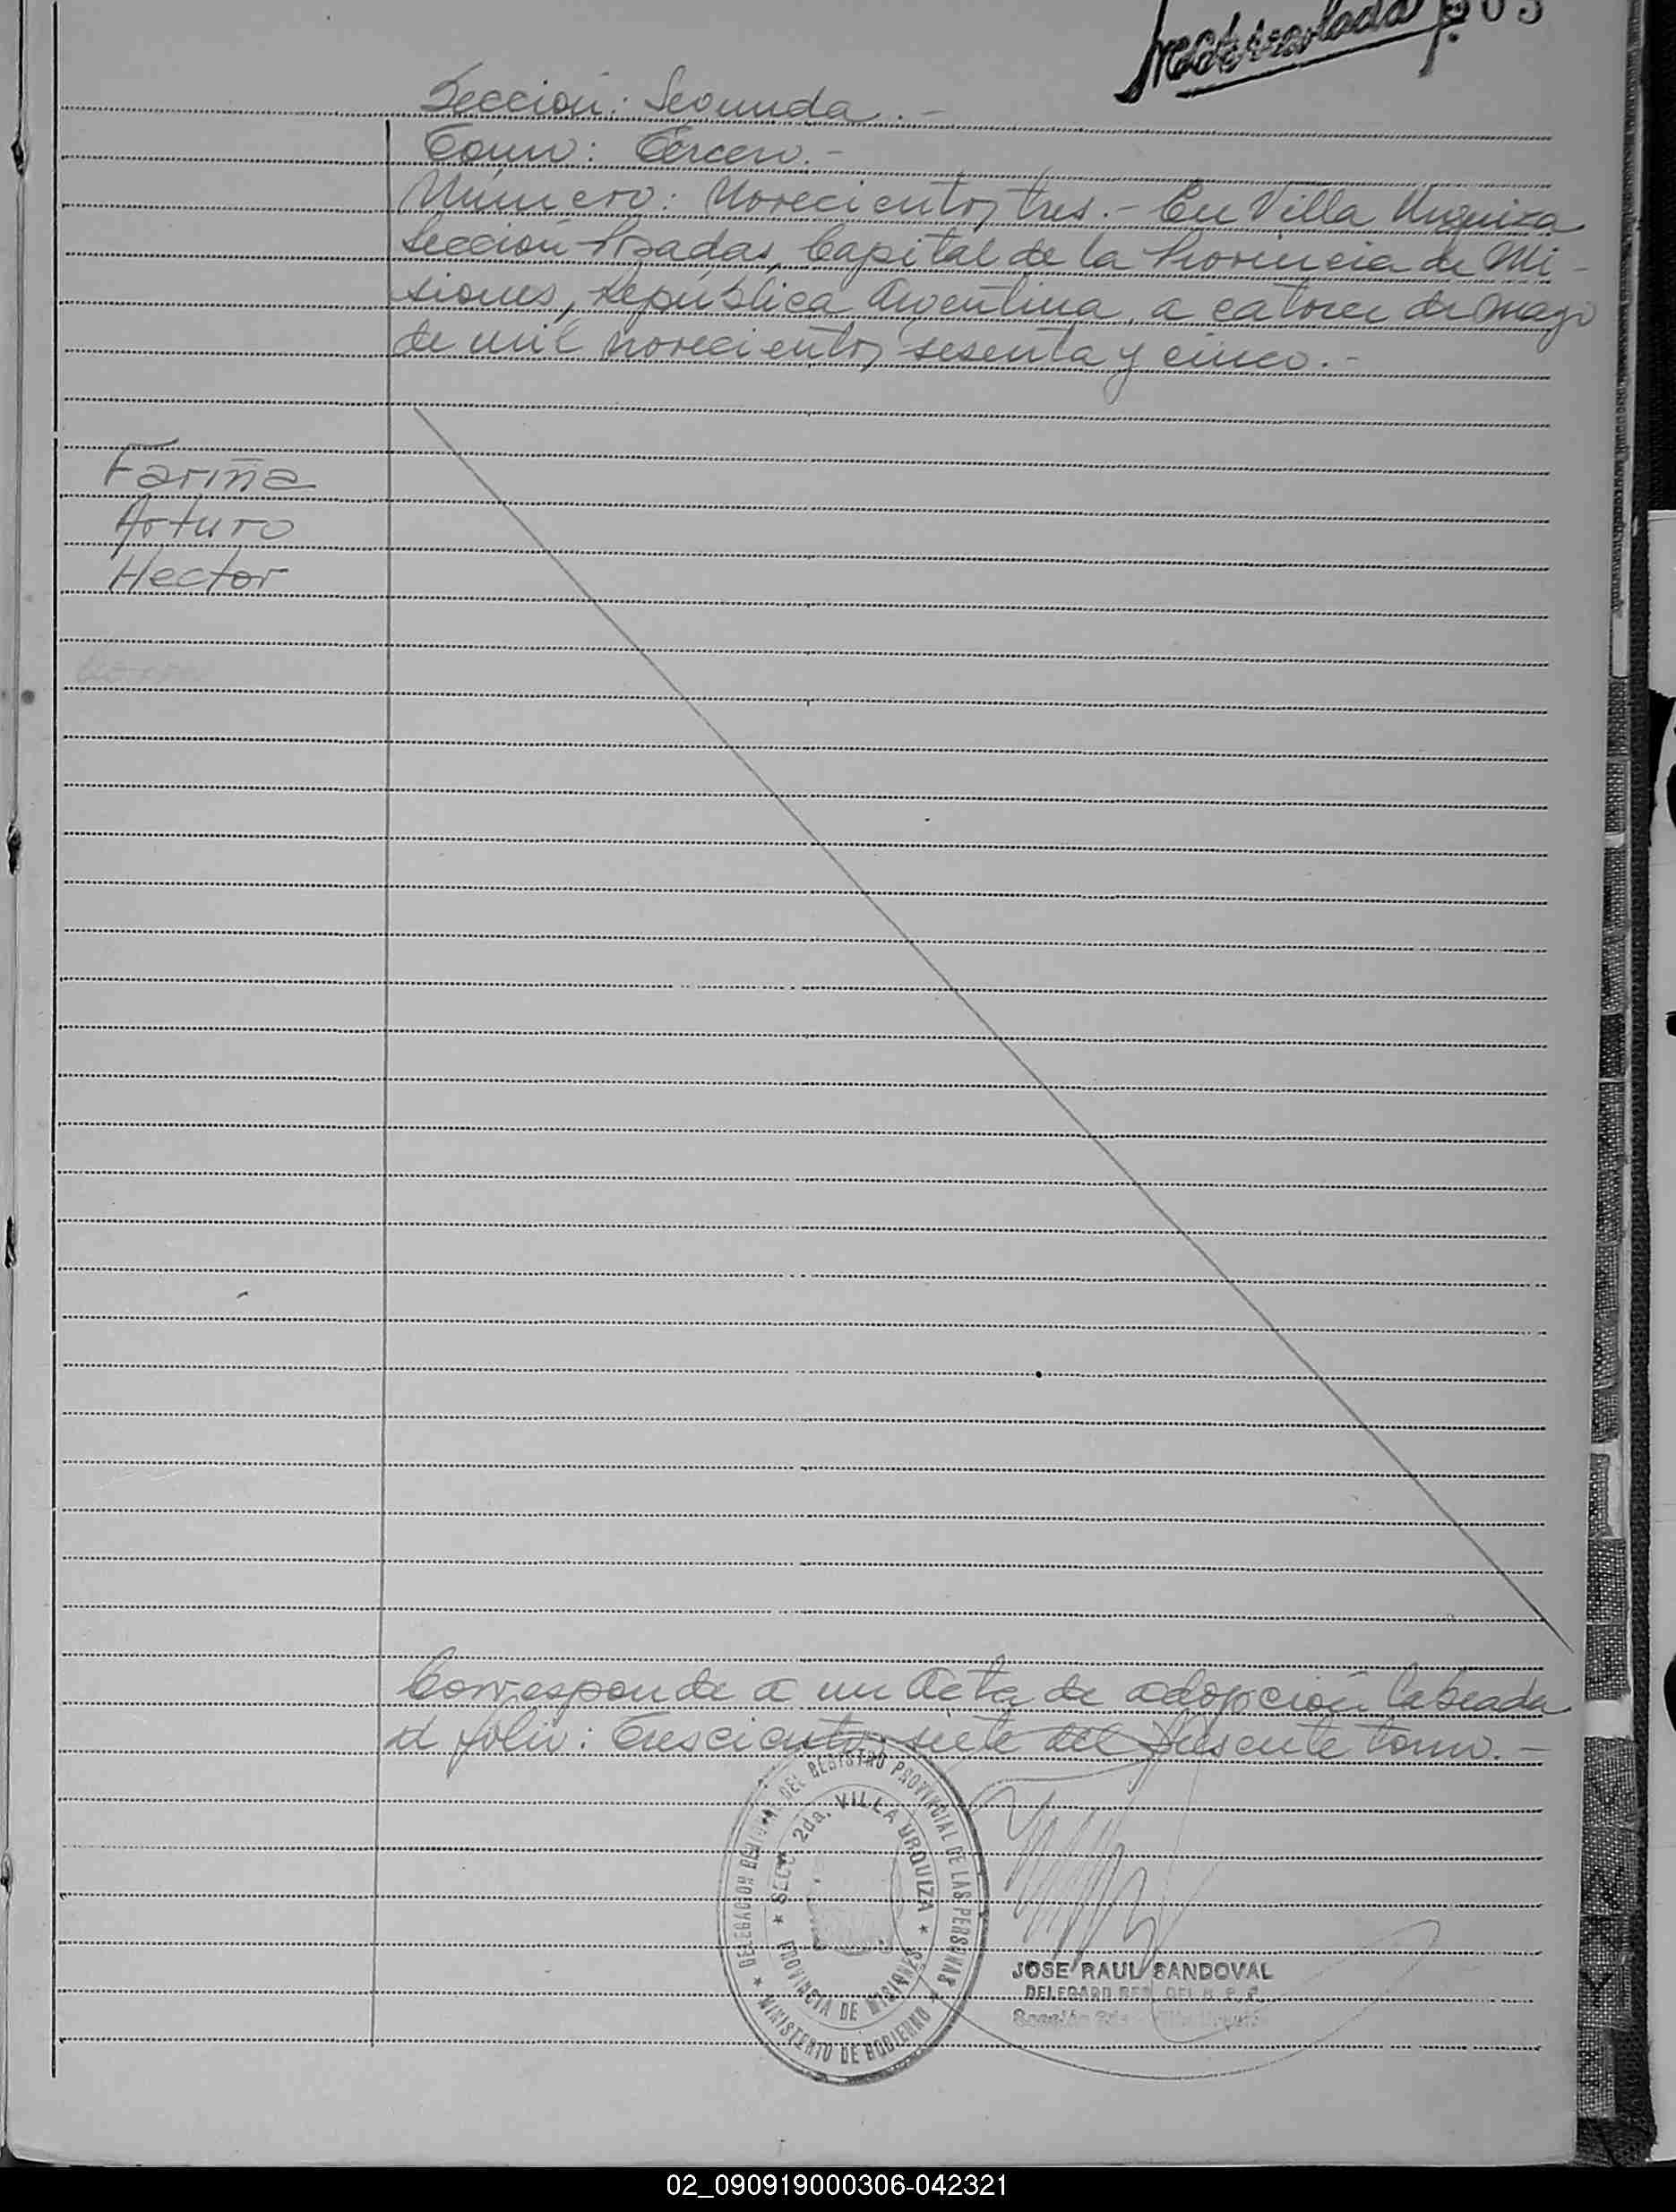 Inmatriculada 903
Sección: Segunda.-
Tomo: Tercero.-
Número: Novecientos tres.- En Villa Urquiza
Sección Posadas, Capital de la Provincia de Mi-
siones, República Argentina, a catorce de mayo
de mil novecientos sesenta y cinco.-
Fariña
Arturo
Hector
Corresponde a un Acta de adopción labrada
al folio: Trescientos siete del presente tomo.-
DELEGACION REGIONAL DEL REGISTRO PROVINCIAL DE LAS PERSONAS
★ MINISTERIO DE GOBIERNO ★
★ SECC. 2da. VILLA URQUIZA ★
PROVINCIA DE MISIONES
JOSE RAUL SANDOVAL
DELEGADO REG. DEL R. P. P.
Sección 2da. Villa Urquiza
02_090919000306-042321